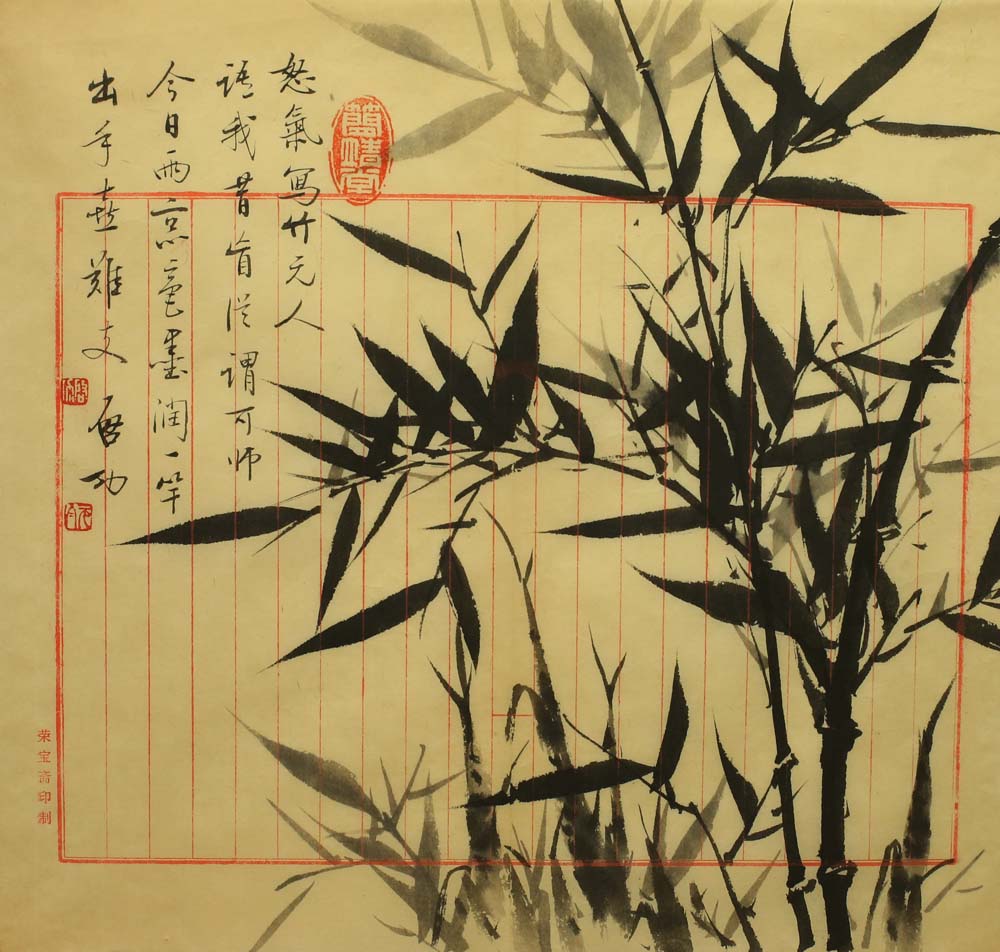 簡靖堂
怒氣寫竹元人
語我昔盲從謂可師
今日雨毫墨潤一竿
出手喜難支 啓功
荣宝斋印制